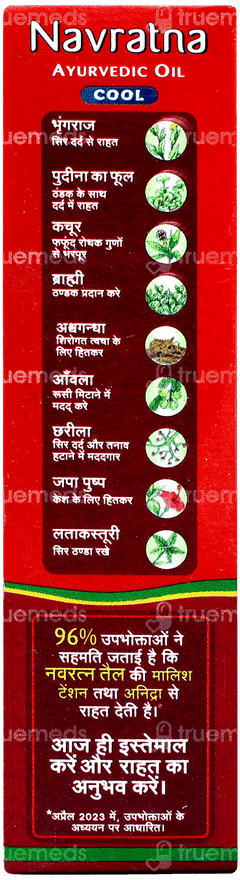 Navratna
AYURVEDIC OIL
COOL
भृंगराज
सिर दर्द से राहत
पुदीना का फूल
ठंडक के साथ
दर्द में राहत
कचूर
फफूंद रोधक गुणों
से भरपूर
ब्राह्मी
ठण्डक प्रदान करे
अश्वगन्धा
शिरोगत त्वचा के
लिए हितकर
आँवला
रूसी मिटाने में
मदद् करे
छरीला
सिर दर्द और तनाव
हटाने में मददगार
जपा पुष्प
केश के लिए हितकर
लताकस्तूरी
सिर ठण्डा रखे
96% उपभोक्ताओं ने
सहमति जताई है कि
नवरत्न तैल की मालिश
टेंशन तथा अनिद्रा से
राहत देती है।*
आज ही इस्तेमाल
करें और राहत का
अनुभव करें।
*अप्रैल 2023 में, उपभोक्ताओं के
अध्ययन पर आधारित।
truemeds